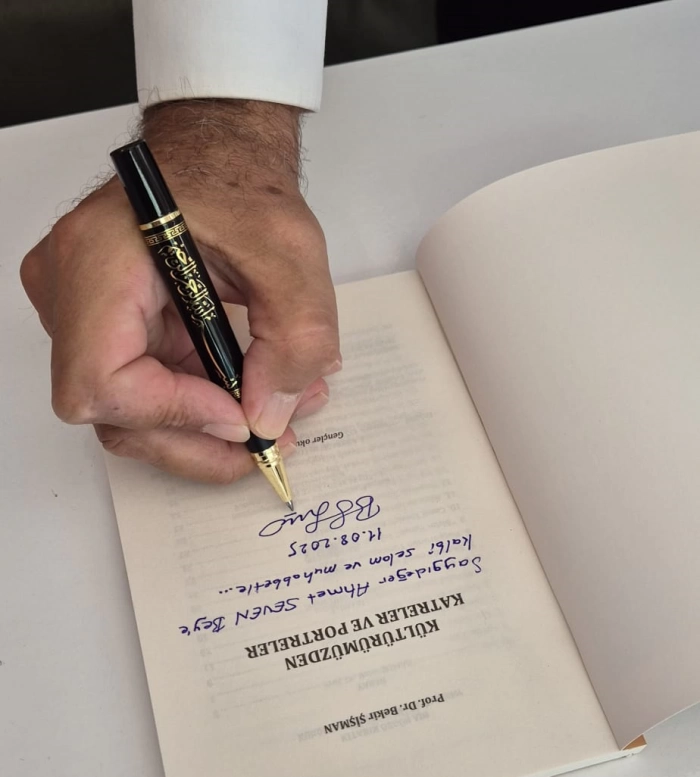 Prof. Dr. Bekir ŞİŞMAN
KÜLTÜRÜMÜZDEN
KATRELER VE PORTRELER
Saygıdeğer Ahmet SEVEN Bey'e
kalbî selam ve muhabbetle...
11.08.2025
Gençler oku